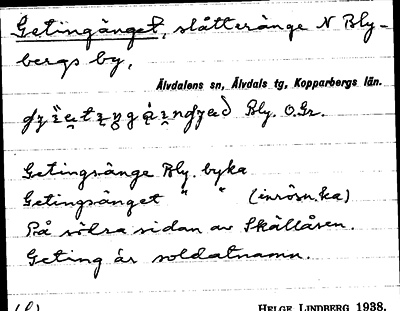 Getingänget, slåtteränge N Bly-
bergs by,
Älvdalens sn, Älvdals tg, Kopparbergs län.
Bly. O.Gr.
Getingsänge Bly. byka
Getingsänget " " (inrösn.ka)
På södra sidan av Skällåsen.
Geting är soldatnamn.
HELGE LINDBERG 1938.